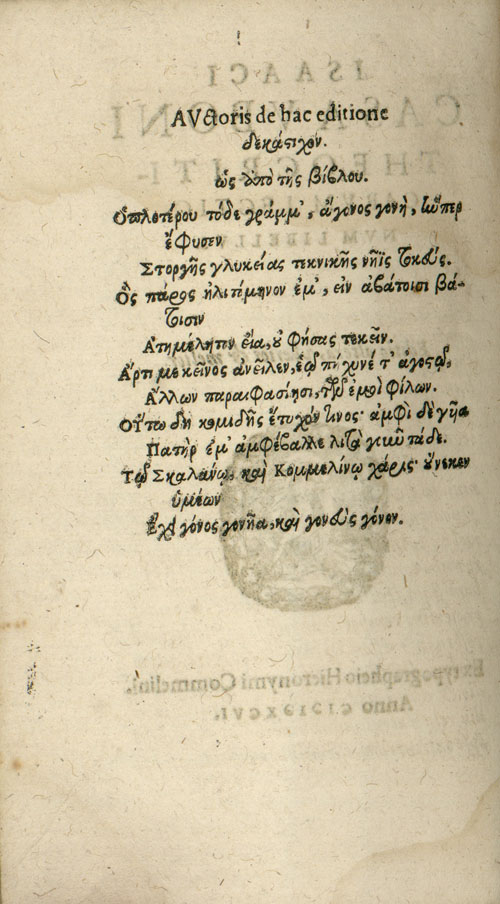 AVctoris de hac editione
δεκάστιχον.
ὡς ἀπὸ τῆς βίβλου.
Ὁπλοτέρου τόδε γράμμ', ἄγονος γονὴ, ὥπερ
ἔφυσεν
Στοργῆς γλυκείας τεκνικῆς νῆϊς τοκεύς.
Ὃς πάρος ἠλιτόμηνον ἔμ', εἰν ἀβάτοισι βά-
τοισιν
Ἀτημέλητον εἴα, οὐ φήσας τεκεῖν.
Ἄρτι με κεῖνος ἀνεῖλεν,
Ἄλλων παραιφασίῃσι, τῶν ἐμοὶ φίλων.
Οὕτω δὴ κομιδῆς ἔτυχόν τινος· ἀμφὶ δὲ γῆα
Πατὴρ ἔμ' ἀμφέβαλλε
Τῷ Σκαλάνῳ, καὶ Κομμελίνῳ χάρις· οὕνεκεν
ὑμέων
Ἔχει γόνος γονῆα, καὶ γονεὺς γόνον.
ISAACI
CASAVBONI
THEOCRITI-
NVM LIBELLVS
Ex typographeio Hieronymi Commelini,
Anno CIↃIↃXCVI.